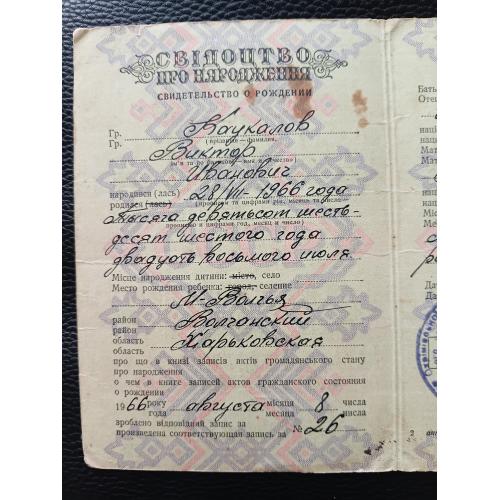 СВІДОЦТВО
ПРО НАРОДЖЕННЯ
СВИДЕТЕЛЬСТВО О РОЖДЕНИИ
Гр. Наукалов
Гр. (прізвище — фамилия,
Виктор
ім'я та по батькові — имя и отчество)
Иванович
народився (лась) 28/VII-1966 года
родился (лась) (прописом и цифрами рік, місяць та число —
Тысяча девятьсот шесть-
прописью и цифрами год, месяц и число)
десят шестого года
двадцать восьмого июля
Місце народження дитини: місто, село
Место рождения ребенка: город, селение
М-Волчья
район Волчанский
район
область Харьковская
область
про що в книзі записів актів громадянського стану
про народження
о чем в книге записей актов гражданского состояния
о рождении
1966 року августа місяця 8 числа
года месяца числа
зроблено відповідний запис за № 26
произведена соответствующая запись за
Бать
Отец
нац
наці
Мат
Мат
наці
наці
Міс
Мес
Дат
Да
2